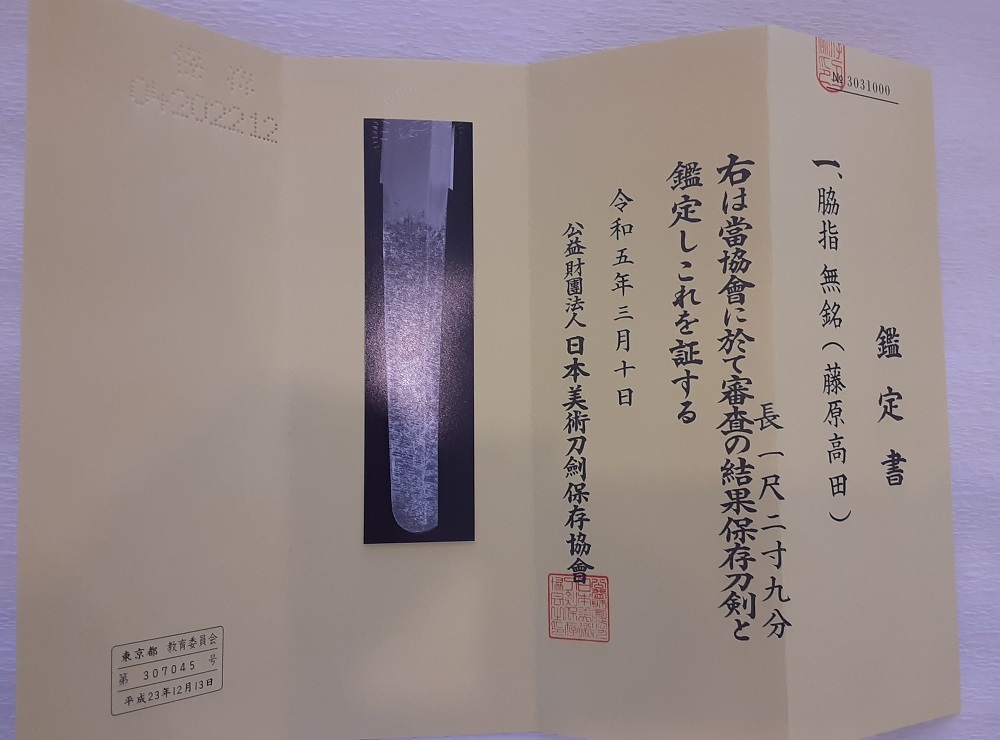 №3031000
鑑定書
一、脇指 無銘(藤原高田)
長 一尺二寸九分
右は當協會に於て審査の結果保存刀剣と
鑑定しこれを証する
令和五年三月十日
公益財團法人 日本美術刀劍保存協會
04202212
東京都 教育委員会
第 307045 号
平成23年12月13日